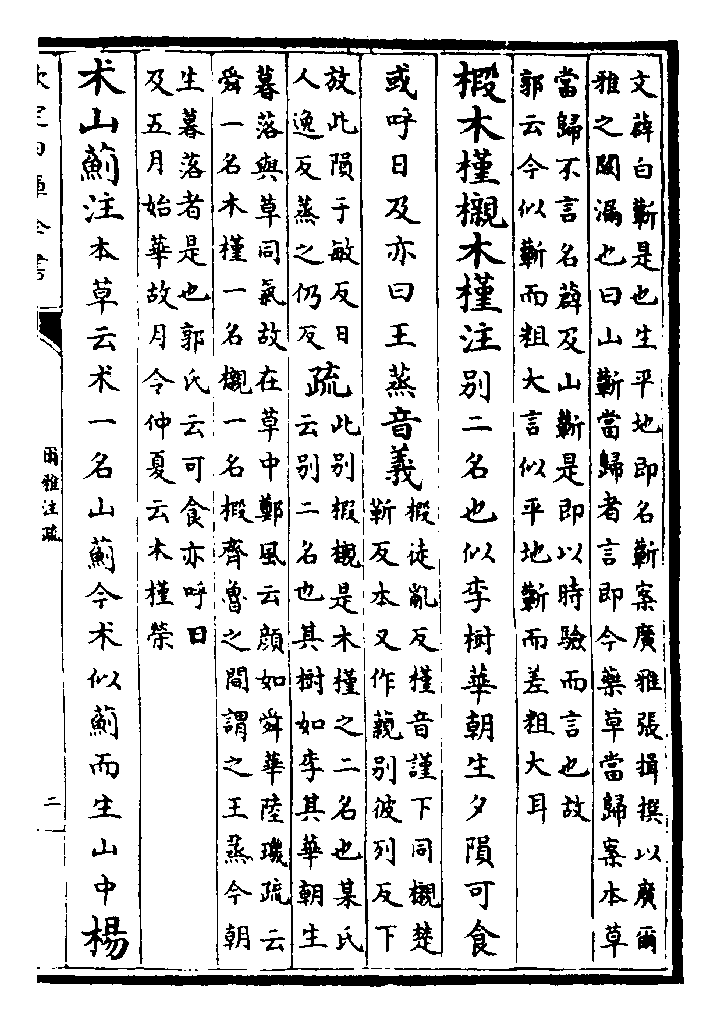 文薜白蘄是也生平地即名蘄案廣雅張揖撰以廣爾
雅之闕漏也曰山蘄當歸者言即今藥草當歸案本草
當歸不言名薜及山蘄是即以時驗而言也故
郭云今似蘄而粗大言似平地蘄而差粗大耳
椴木槿櫬木槿注别二名也似李樹華朝生夕隕可食
或呼日及亦曰王蒸音義
椴徒亂反槿音謹下同櫬楚
靳反本又作藽别彼列反下
放此隕于敏反日
人逸反蒸之仍反
疏
此别椴櫬是木槿之二名也某氏
云别二名也其樹如李其華朝生
暮落與草同氣故在草中鄭風云顔如舜華陸璣疏云
舜一名木槿一名櫬一名椴齊魯之間謂之王蒸今朝
生暮落者是也郭氏云可食亦呼日
及五月始華故月令仲夏云木槿榮
术山薊注本草云术一名山薊今术似薊而生山中楊
欽定四庫全書
爾雅注疏
二